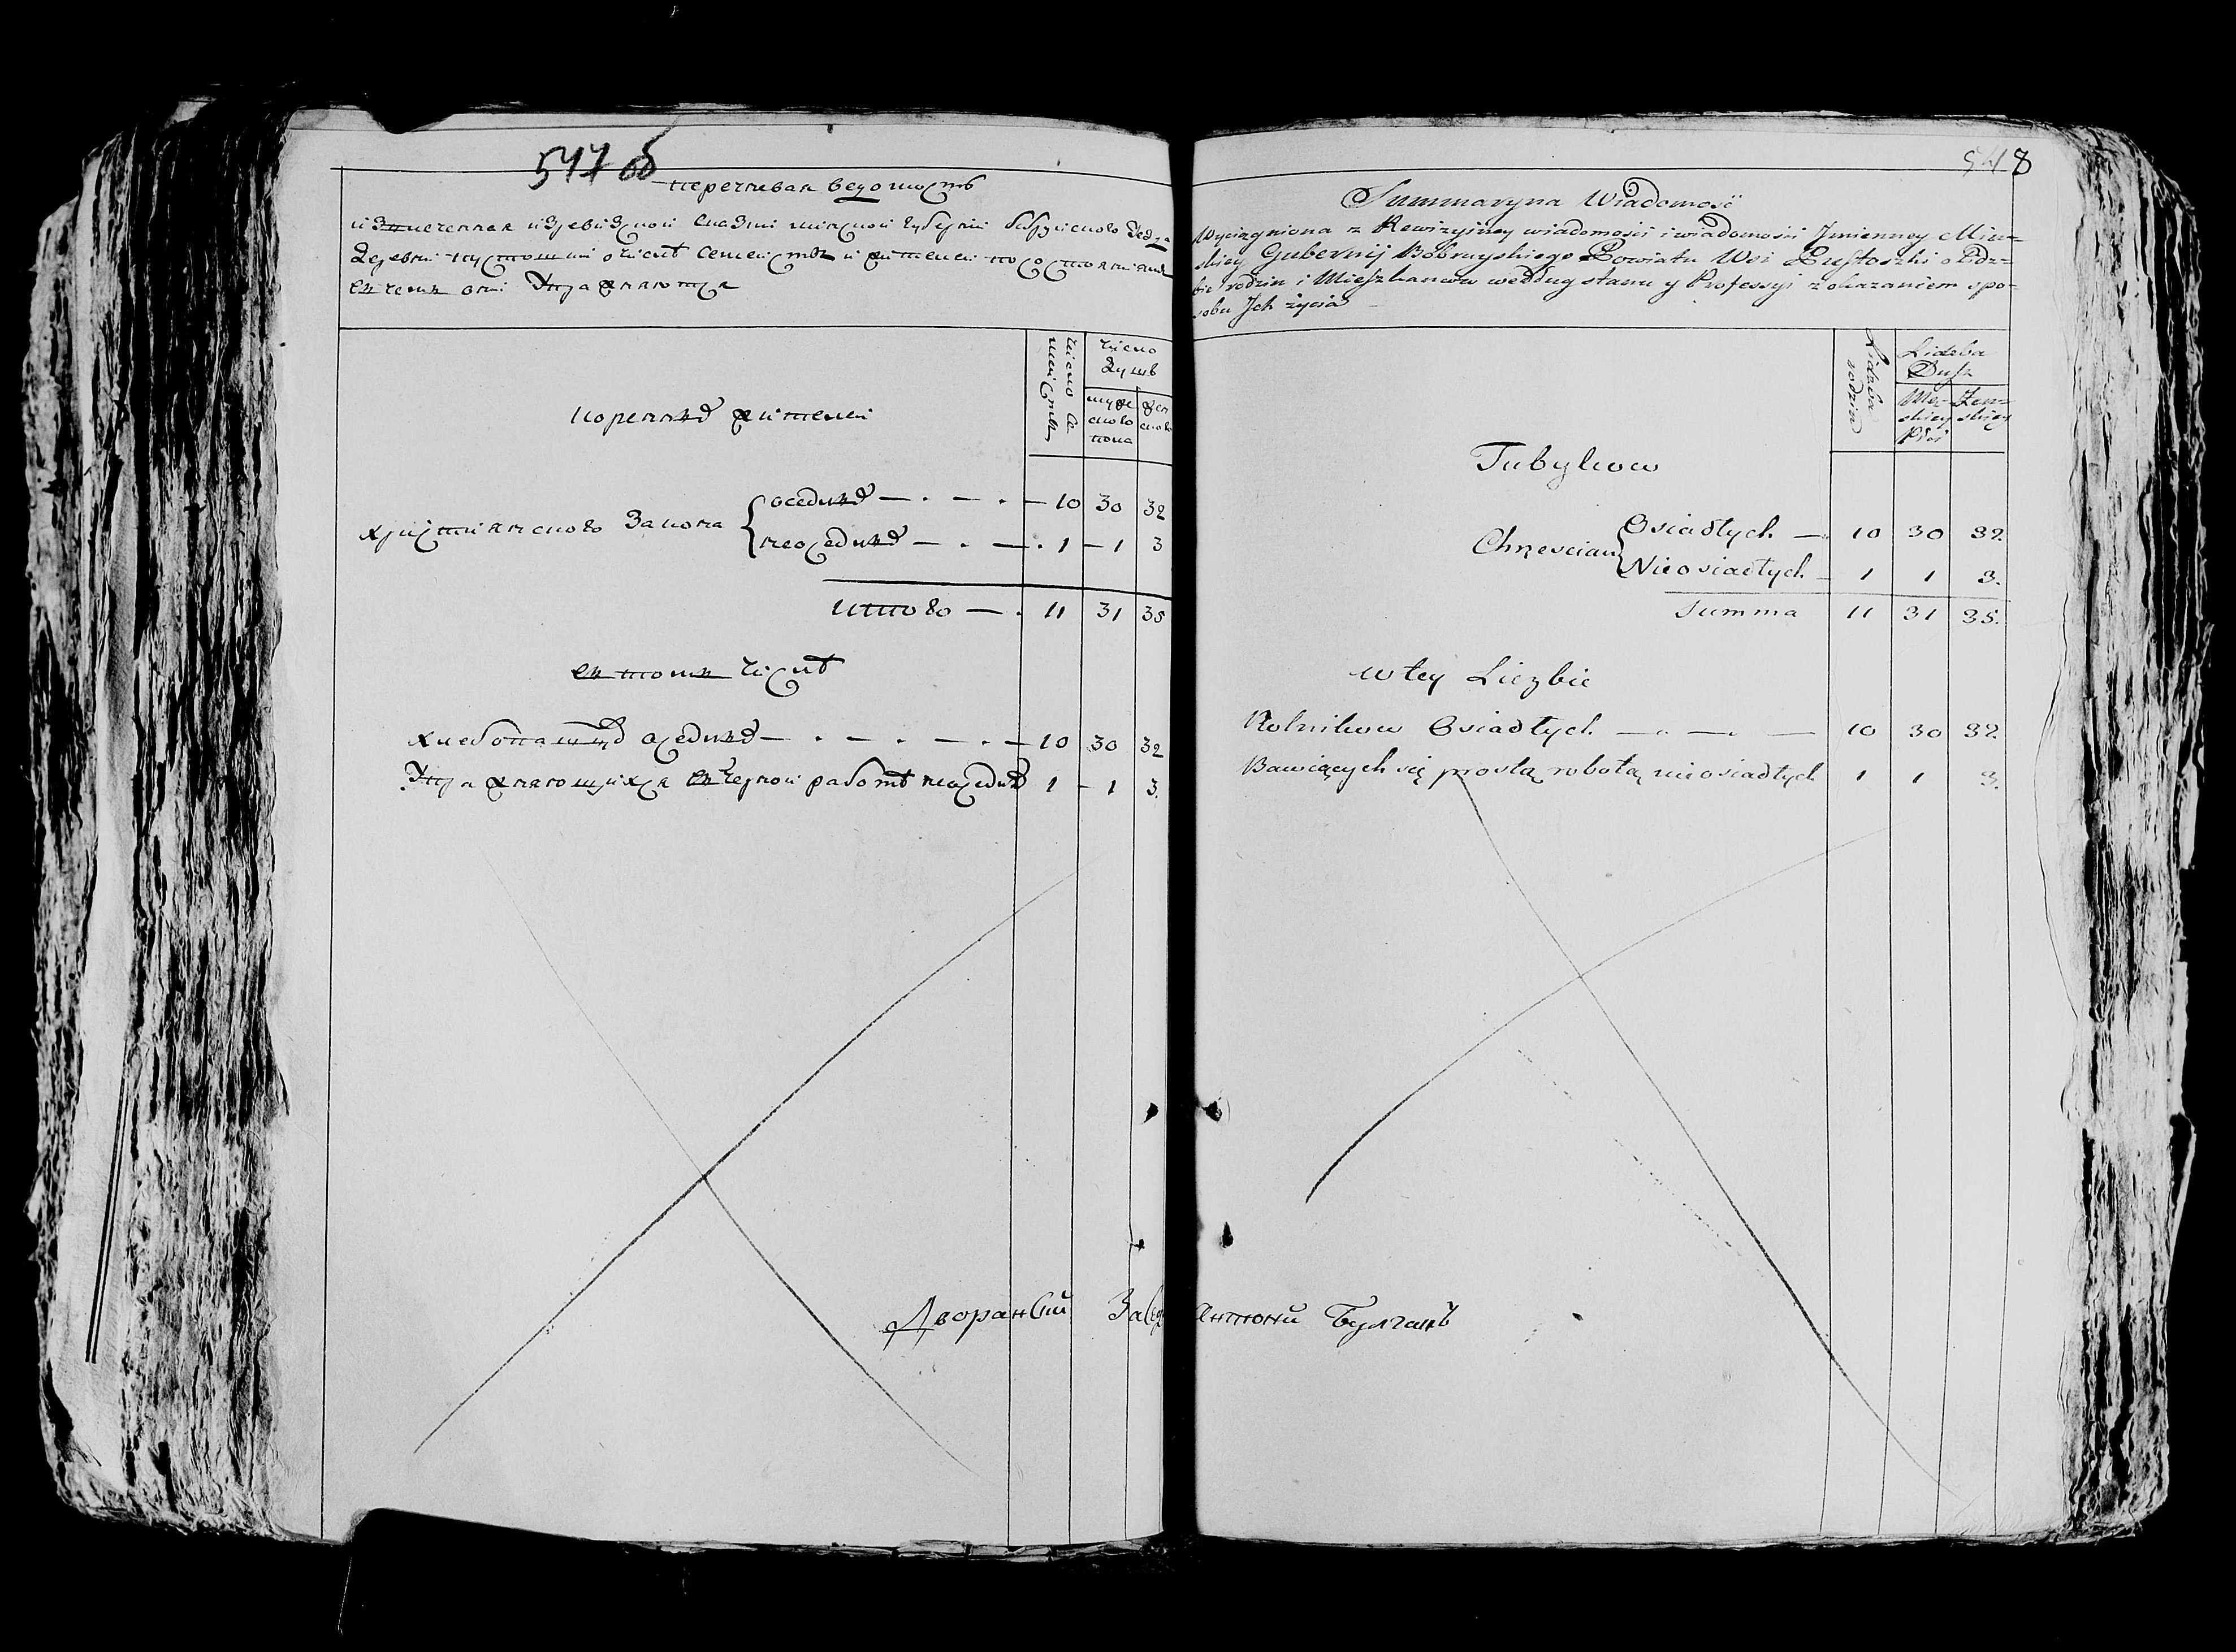 547 об
перечневая ведомость
извлеченная изревизскои сказки минскои губернии бобруйского уезда
деревни пустошки о числѣ семействъ и жителеи по состоянию
въ чемъ они упражняются
число семействъ
число душъ
мужеского пола
женского
коренныхъ жителеи
христианского закона
оседлыхъ — 10 30 32
неоседлыхъ — 1 1 3
итого — 11 31 35
въ томъ числѣ
хлебопашцовъ оседлыхъ — 10 30 32
упражняющихся въ черной работѣ неоседлыхъ 1 1 3.
Дворянский Засед
548
Summaryna Wiadomość
Wyciągniona z Rewizyiney wiadomości i wiadomości Jmienney Min=
skiey Gubernij Bobruyskiego Powiatu Wsi Pustoszki o Licz=
bie rodzin i Mieszkancow według stanu y Professyi z okazaniem spo=
sobu Jch życia
Liczba rodzin
Liczba Dusz
Męskiey Płci
Żenskiey
Tubylcow
Chrzescian
Osiadłych — 10 30 32.
Nieosiadłych — 1 1 3.
Summa 11 31 35.
w tey Liczbie
Rolnikow Osiadłych — 10 30 32.
Bawiących się prostą robotą nieosiadłych 1 1 3.
Антони Булгакъ